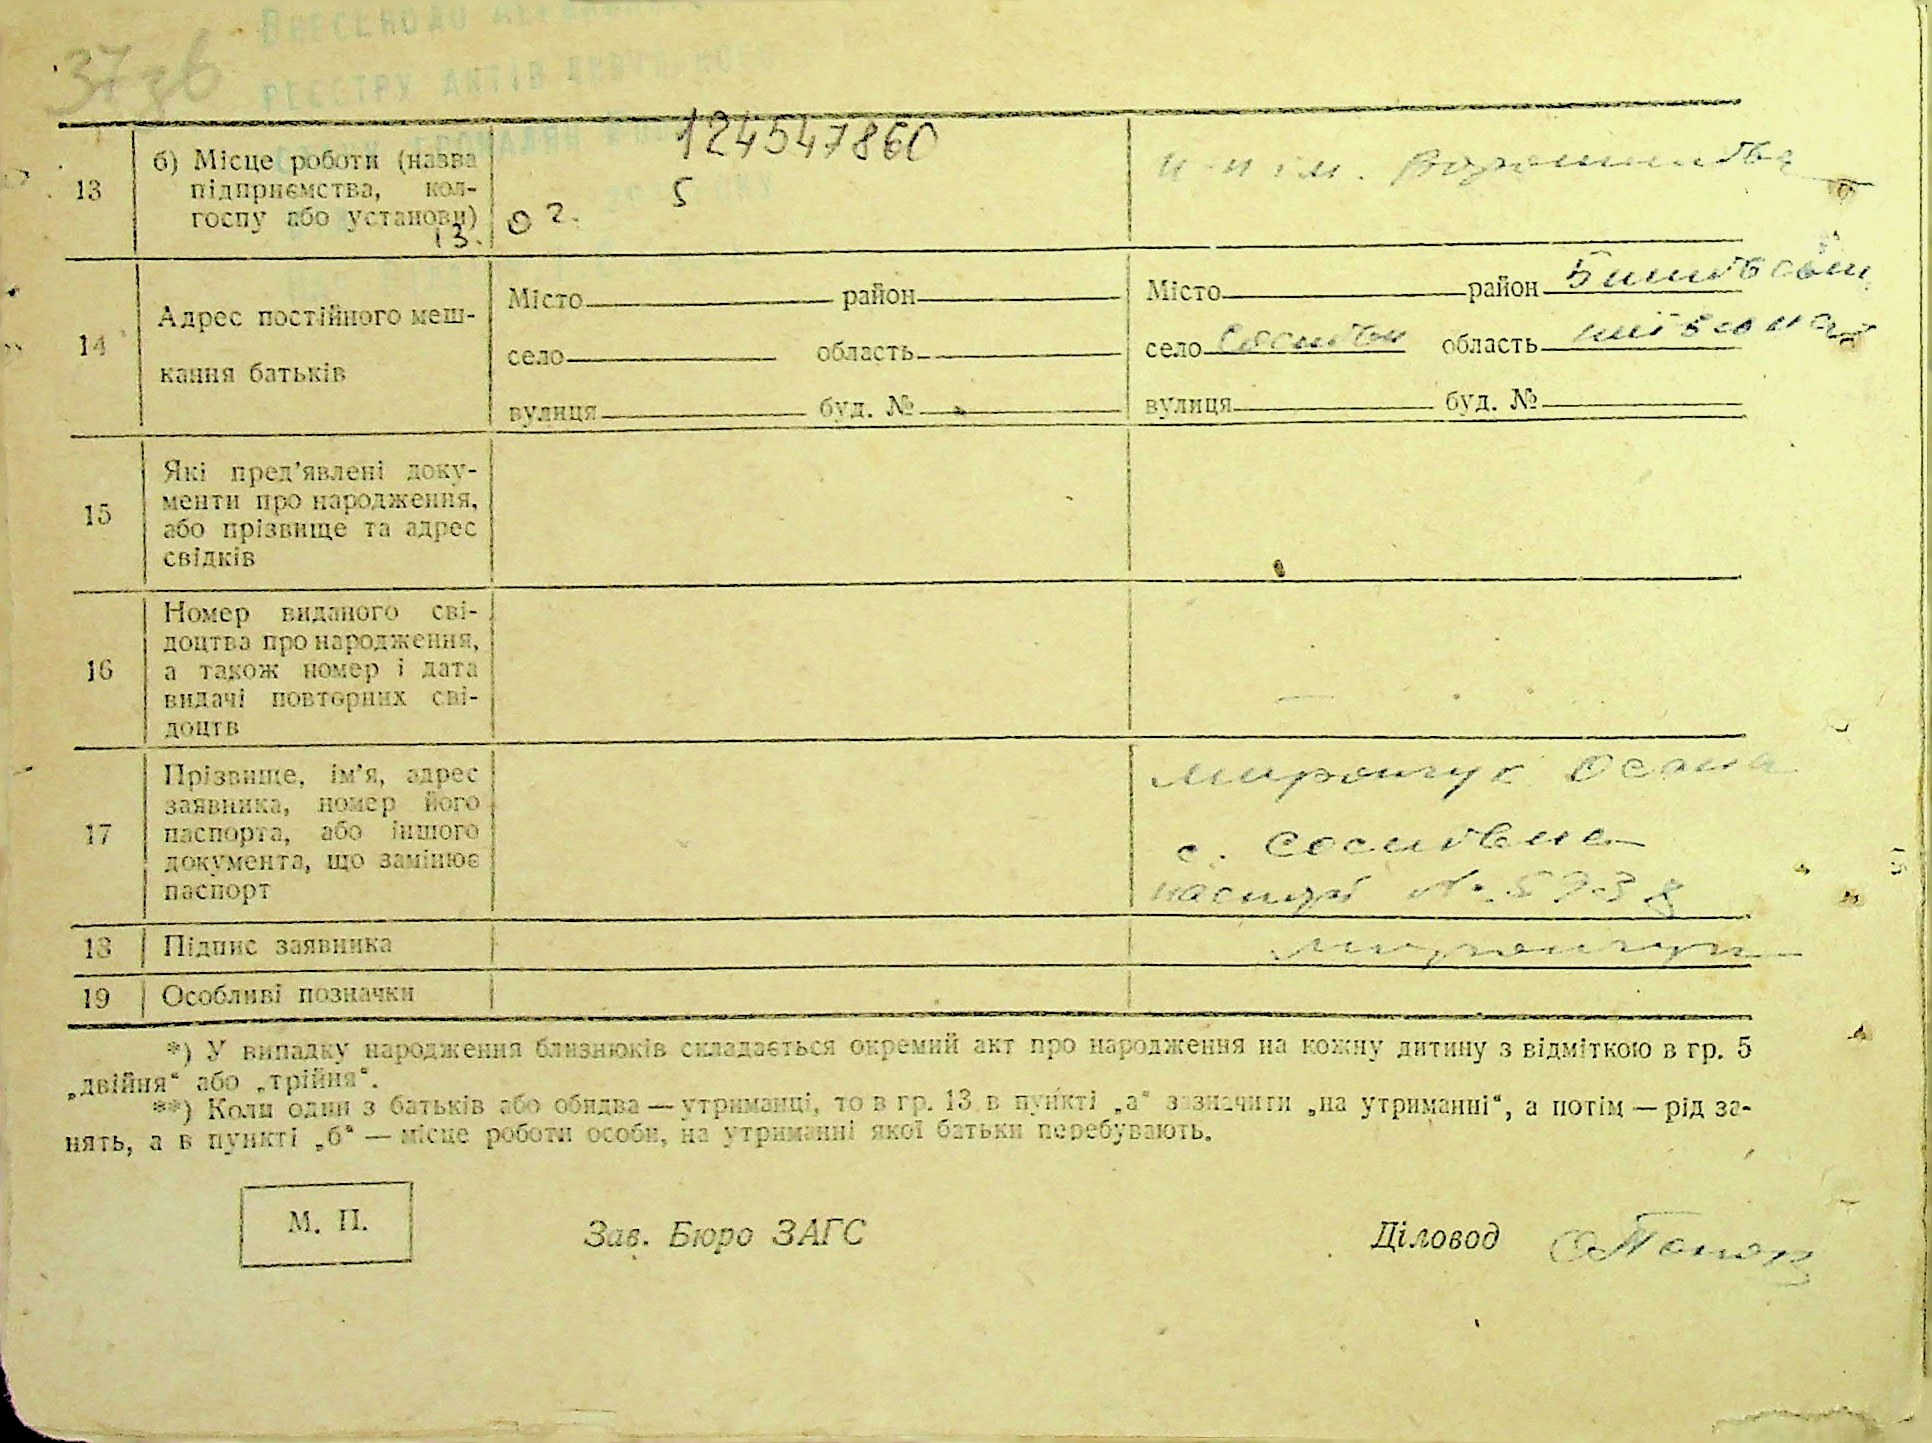 37зв
Внесено до
реєстру актів цивільного
124547860
5
02.
13.
13 б) Місце роботи (назва
підприємства, кол-
госпу або установи)
к-п ім. Ворошилова
14 Адрес постійного меш-
кання батьків
Місто район
село область
вулиця буд. №
Місто район
село Соснівка область київська
вулиця буд. №
15 Які пред'явлені доку-
менти про народження,
або прізвище та адрес
свідків
16 Номер виданого сві-
доцтва про народження,
а також номер і дата
видачі повторних сві-
доцтв
17 Прізвище, ім'я, адрес
заявника, номер його
паспорта, або іншого
документа, що замінює
паспорт
мирончук
с. соснівка
паспорт №
18 Підпис заявника
мирончук
19 Особливі позначки
*) У випадку народження близнюків складається окремий акт про народження на кожну дитину з відміткою в гр. 5
„двійня“ або „трійня“.
**) Коли один з батьків або обидва — утриманці, то в гр. 13 в пункті „а“ зазначити „на утриманні“, а потім — рід за-
нять, а в пункті „б“ — місце роботи особи, на утриманні якої батьки перебувають.
М. П.
Зав. Бюро ЗАГС
Діловод